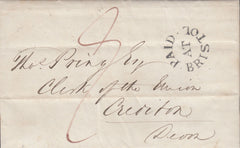 PAID
AT
BRISTOL
Thos. Pring Esq
Clerk of the Union
Crediton
Devon